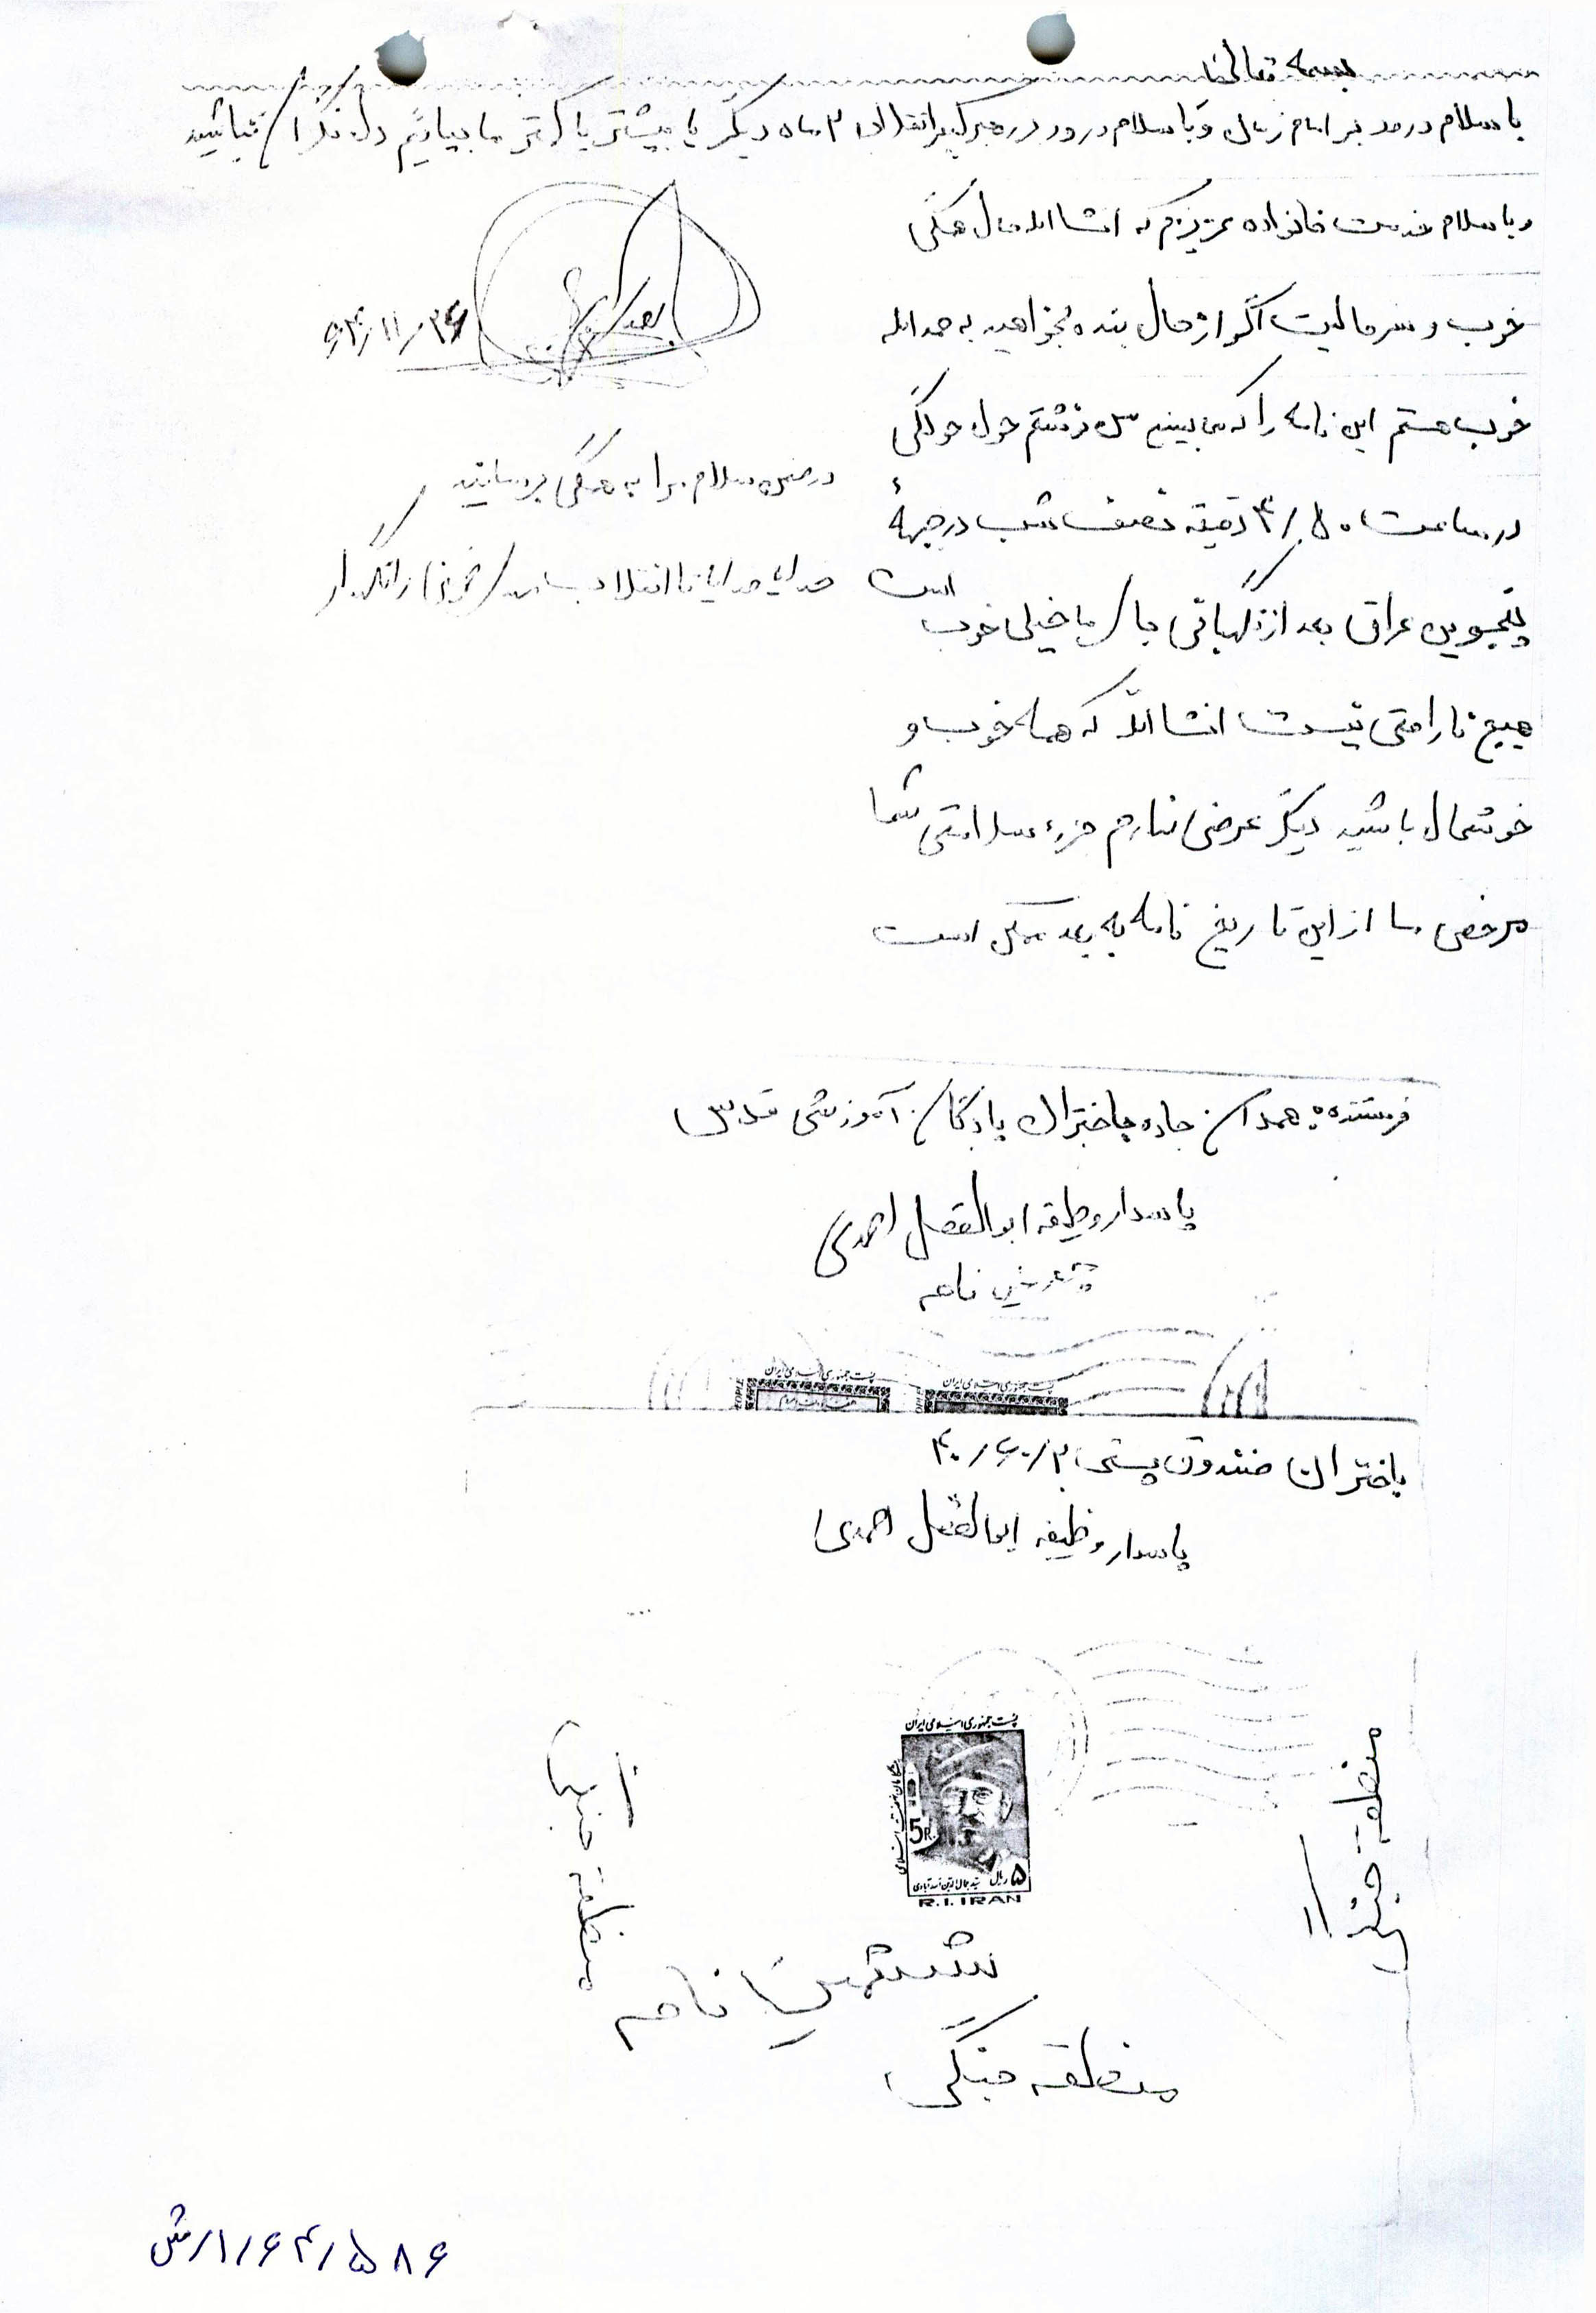 بسمه تعالی
با سلام درود بر امام زمان و با سلام درود در رهبر کبیر انقلاب
۲ ماه دیگر یا بیشتر یا کمتر ما بیائیم دل نگران نباشید
و با سلام خدمت خانواده عزیزم که انشااله حال همگی
خوب و سرحالیت اگر از حال بنده بخواهید به حمداله
خوب هستم این نامه را که می بینید من نوشتم
در ساعت ۴/۵۰ دقیقه نصف شب در جبهۀ
پنجوین عراق بعد از نگهبانی جای ما خیلی خوب است
هیچ ناراحتی نیست انشااله که همه خوب و
خوشحال باشید دیگر عرضی ندارم جزء سلامتی شما
مرخصی ما از این تاریخ نامه به بعد ممکن است
۶۴/۱۱/۲۶
در ضمن سلام مرا به همگی برسانید
خدایا خدایا تا انقلاب مهدی خمینی را نگهدار
فرستنده: همدان جاده باختران پادگان آموزشی قدس
پاسدار وظیفه ابوالفضل احمدی
نامه
پست جمهوری اسلامی ایران
پست جمهوری اسلامی ایران
باختران صندوق پستی ۴۰/۶۰/۲
پاسدار وظیفه ابوالفضل احمدی
پست جمهوری اسلامی ایران
5R.
۵ ریال
سید جمال الدین اسدآبادی
R.I.IRAN
منطقه جنگی
منطقه جنگی
ششمین نامه
منطقه جنگی
۱/۶۴/۵۸۶/ش